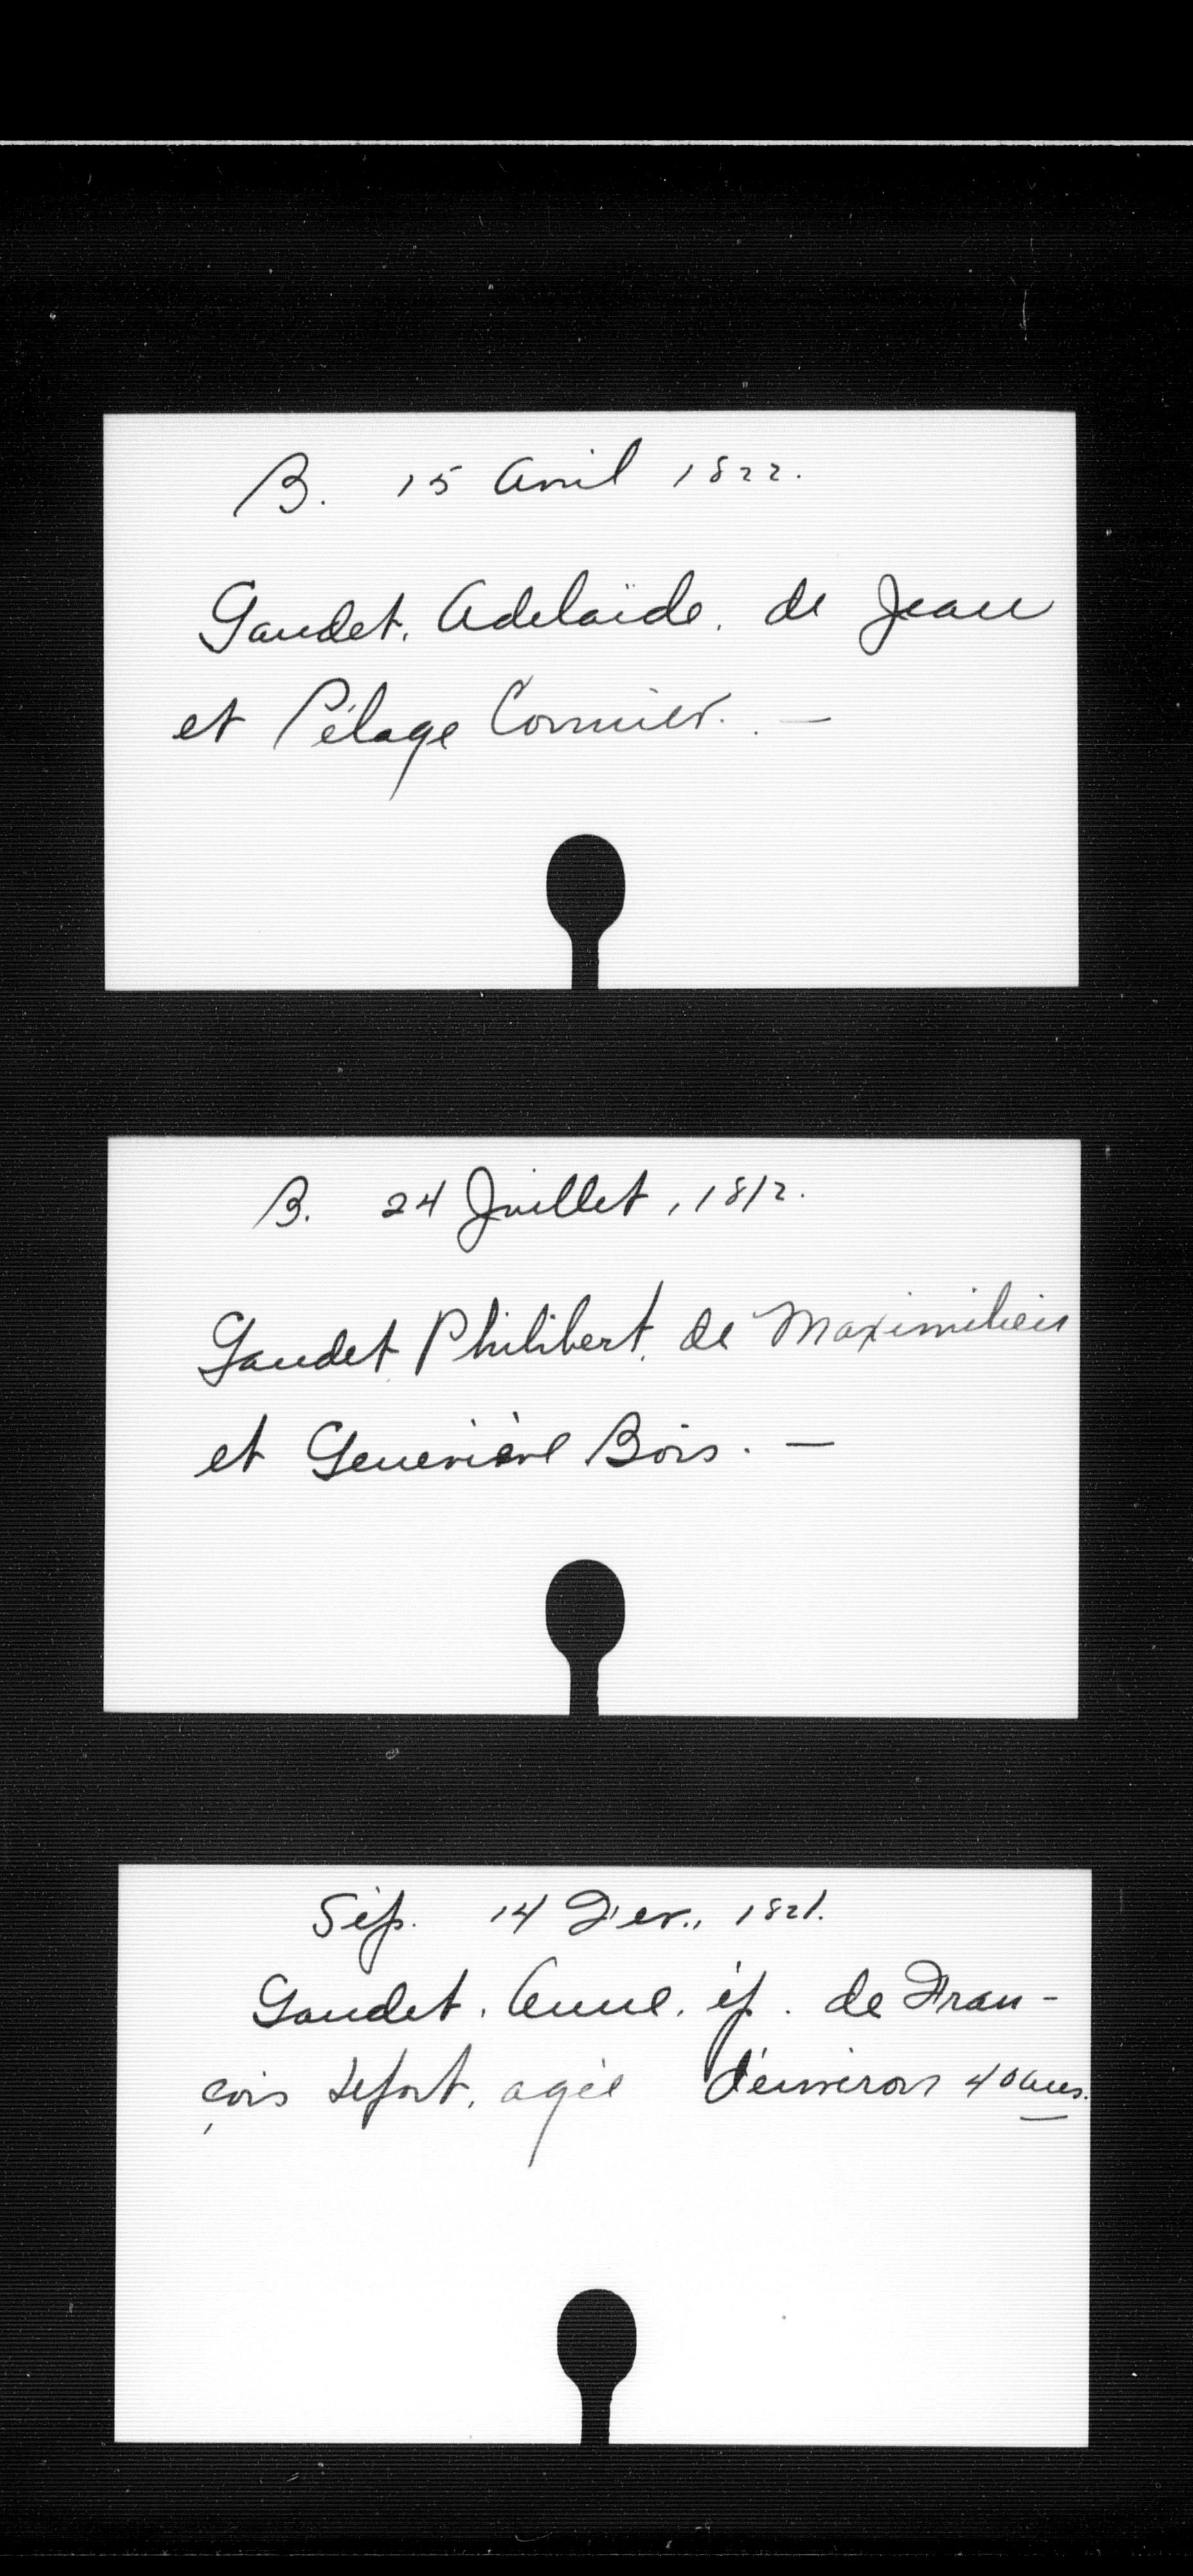 B. 15 Avril 1822.
Gaudet, Adelaïde, de Jean
et Pélage Cormier. —
B. 24 Juillet, 1812.
Gaudet, Philibert, de Maximilien
et Geneviève Bois. —
Sép. 14 Fev., 1821.
Gaudet, Anne, ép. de Fran-
çois Lefort, agée d'environ 40 ans.